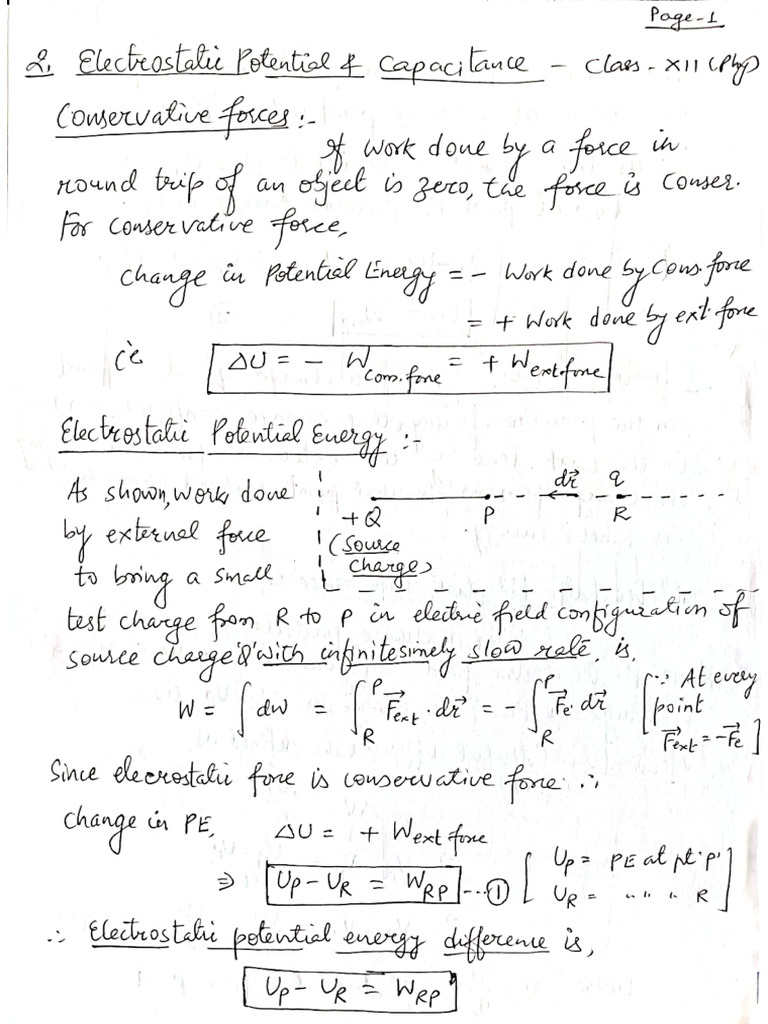 Page-1
2. Electrostatic Potential & Capacitance - Class-XII (Phy)
Conservative forces :-
If work done by a force in
round trip of an object is zero, the force is conser.
For conservative force,
change in Potential Energy = - Work done by Cons. force
= + Work done by ext. force
i.e ΔU = - W_cons. force = + W_ext force
Electrostatic Potential Energy :-
As shown, work done
by external force
to bring a small
+Q P dr⃗ q R
(Source
charge)
test charge from R to P in electric field configuration of
source charge 'Q' with infinitesimely slow rate, is,
W = ∫ dw = ∫_R^P F⃗_ext . dr⃗ = - ∫_R^P F⃗_e . dr⃗ [∵ At every
point
F⃗_ext = -F⃗_e ]
Since elecrostatic force is conservative force ∴
change in PE, ΔU = + W_ext force
⇒ U_P - U_R = W_RP ---① [ U_P = PE at pt. 'P'
U_R = " " " R ]
∴ Electrostatic potential energy difference is,
U_P - U_R = W_RP